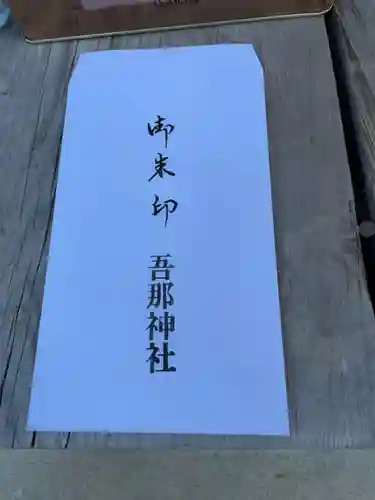 御朱印 吾那神社